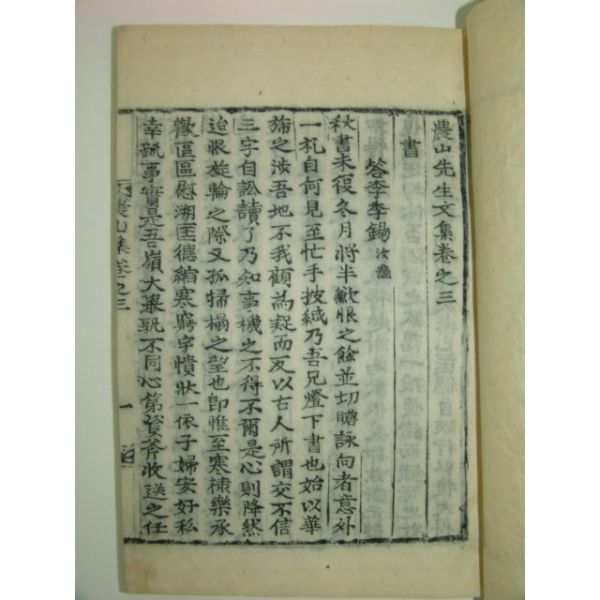 農山先生文集卷之三
書
答李季錫
秋書未復冬月將半歉恨之餘並切瞻詠向者意外
一札自何見至忙手披緘乃吾兄燈下書也始以華
旆之涉吾地不我顧為疑而反以古人所謂交不信
三字自訟讀了乃知事機之不得不爾是心則降然
迨恨旋輪之際又孤掃榻之望也卽惟至寒棣樂承
歡區區慰溯匡德縮寒窮字憒狀一依子婦安好私
幸䟽事實是吾嶺大擧孰不同心第資斧收送之任
農山集卷之三
一